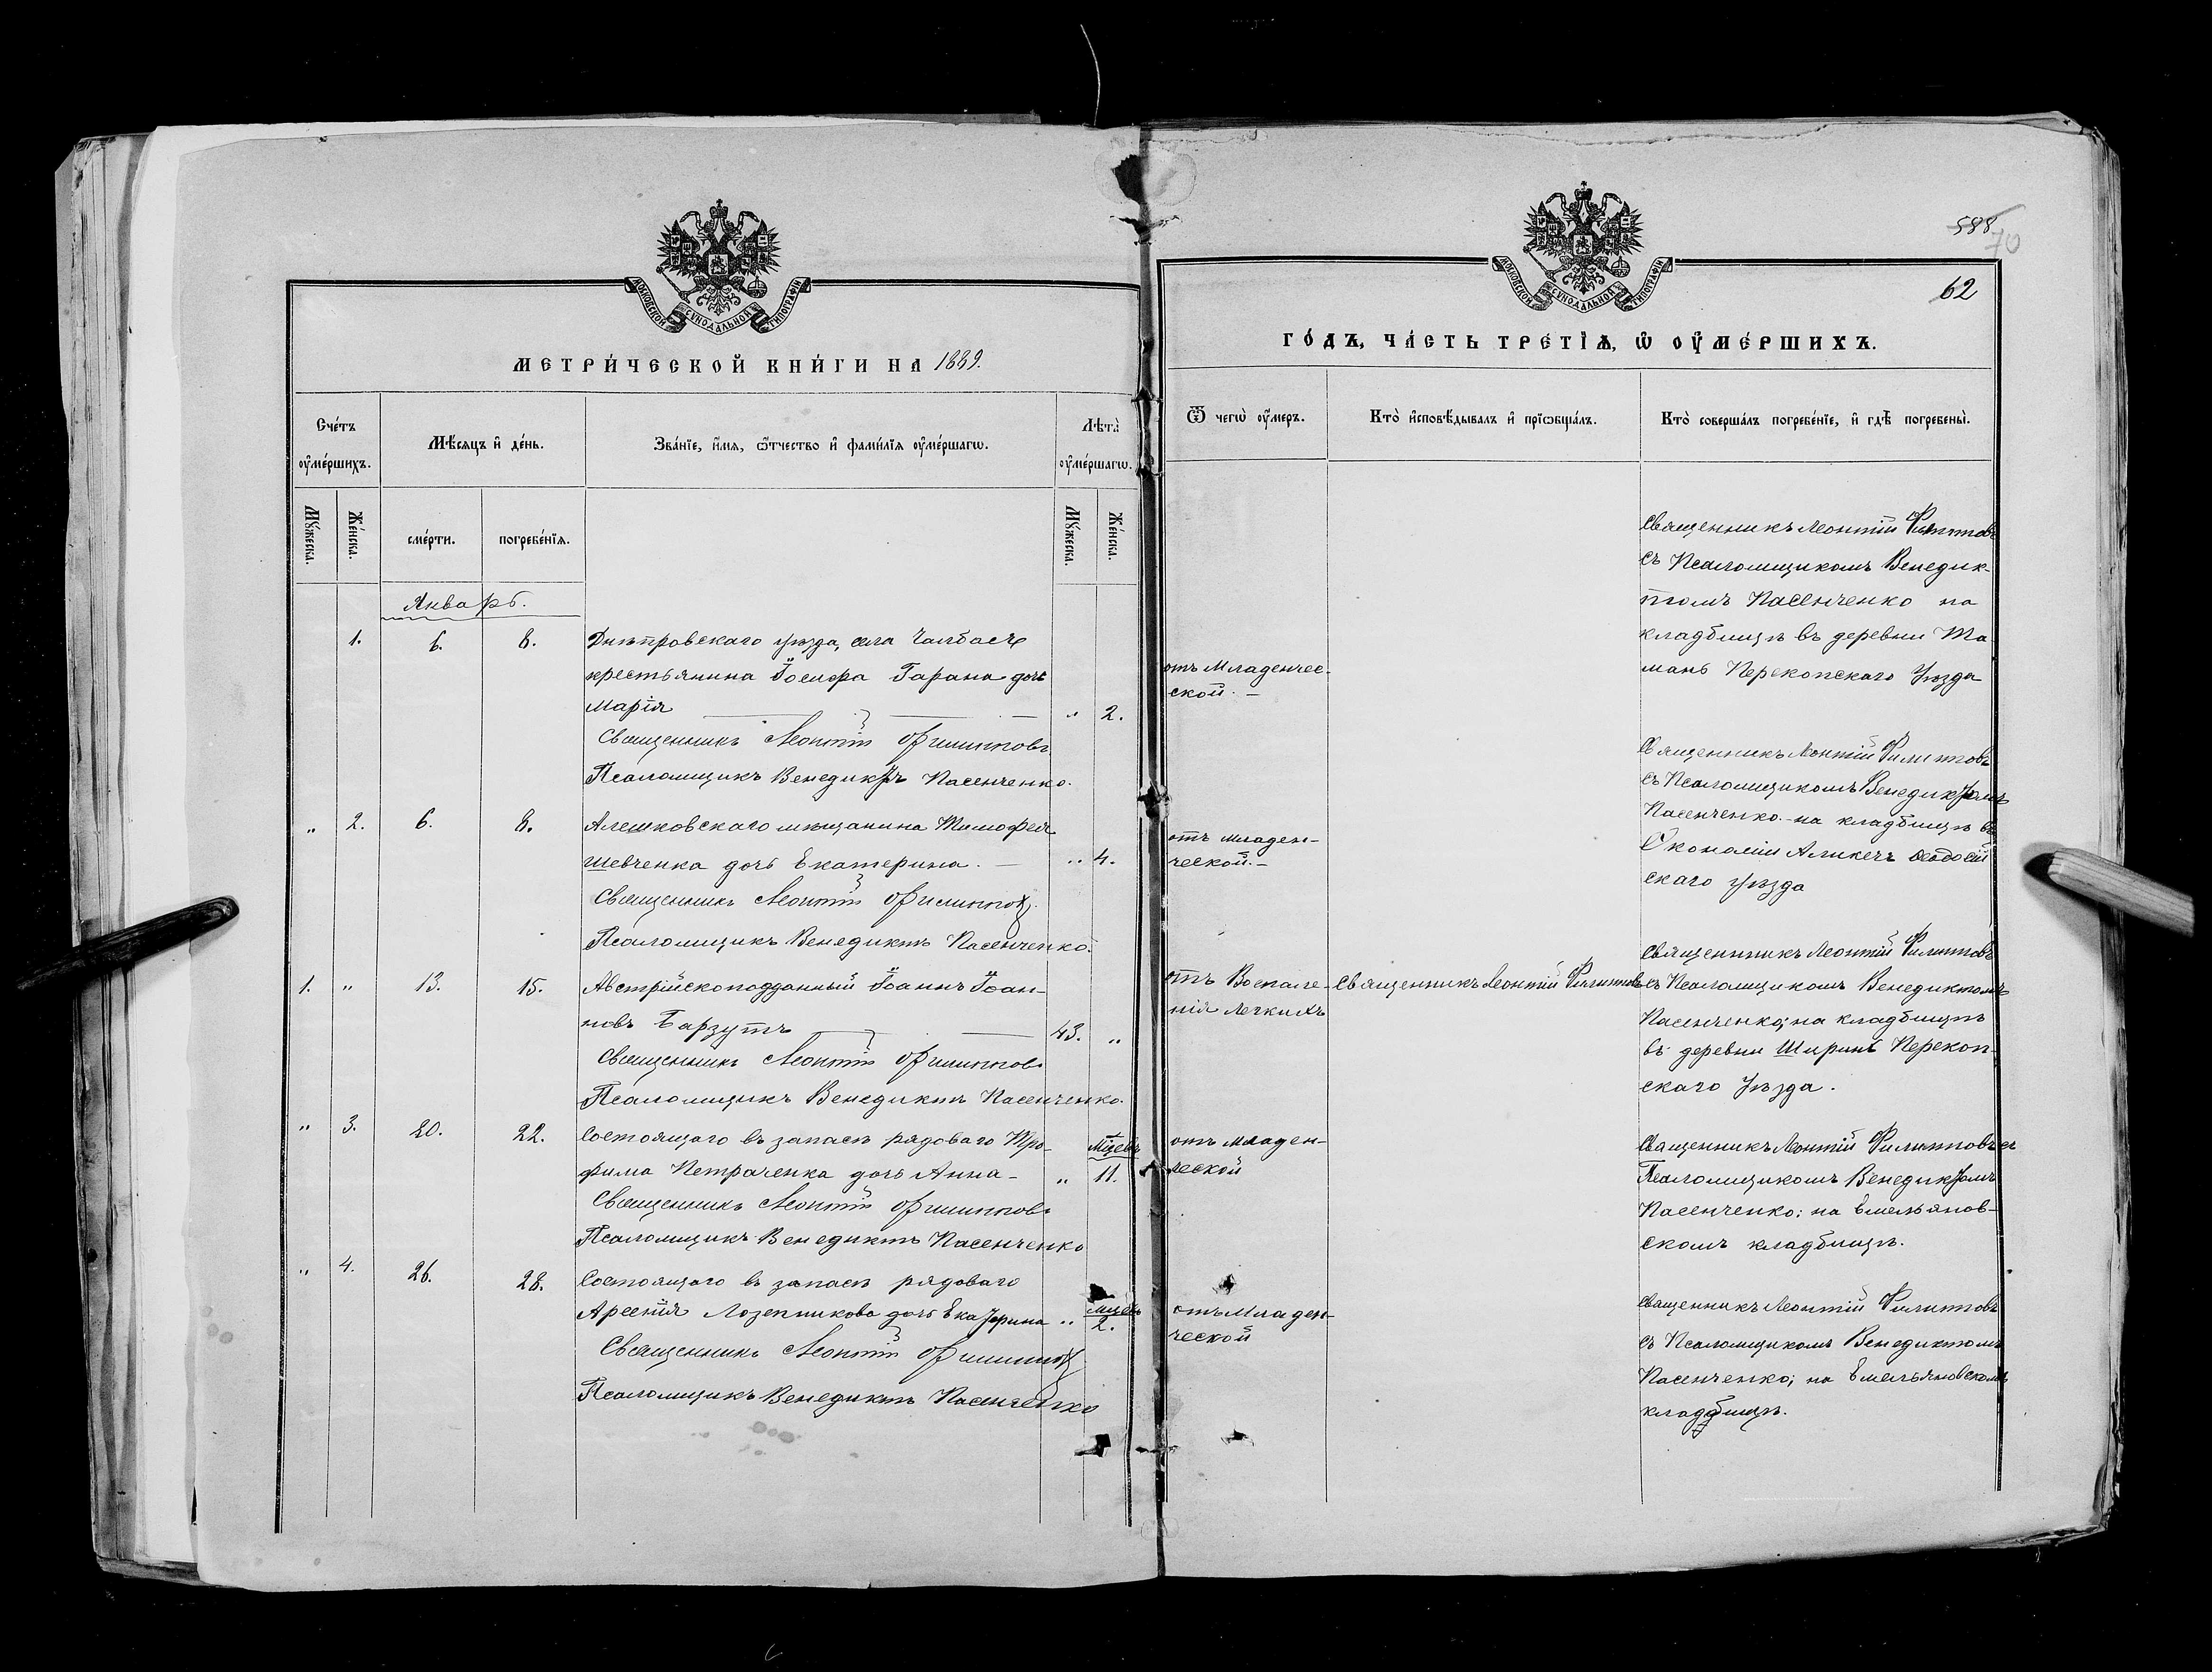 МОСКОВСКОЙ СѴНОДАЛЬНОЙ ТИПОГРАФІИ
МЕТРИ́ЧЕСКОЙ КНИ́ГИ НА 1889.
Сче́тъ ᲂу҆ме́ршихъ.
Мѣ́сяцъ и҆ де́нь.
Зва́нїе, и҆́мя, ѻ҆́тчество и҆ фами́лїя ᲂу҆ме́ршагѡ.
Лѣ́та ᲂу҆ме́ршагѡ.
Му́жеска.
Же́нска.
сме́рти.
погребе́нїя.
Му́жеска.
Же́нска.
Январь.
1. 6. 8. Днѣпровскаго уѣзда, села Чалбасъ
крестьянина Іосифа Гарана дочь
Марія „ 2.
Священникъ Леонтій Филипповъ
Псаломщикъ Венедиктъ Пасенченко.
„ 2. 6. 8. Алешковскаго мѣщанина Тимофея
Шевченка дочь Екатерина. „ 4.
Священникъ Леонтій Филипповъ.
Псаломщикъ Венедиктъ Пасенченко.
1. „ 13. 15. Австрійскоподданный Іоаннъ Іоан-
новъ Барзутъ 43. „
Священникъ Леонтій Филипповъ
Псаломщикъ Венедиктъ Пасенченко.
„ 3. 20. 22. Состоящаго въ запасѣ рядоваго Тро- Мѣсцевъ
фима Петраченка дочь Анна - „ 11.
Священникъ Леонтій Филипповъ
Псаломщикъ Венедиктъ Пасенченко
„ 4. 26. 28. Состоящаго въ запасѣ рядоваго
Арсенія Лозенникова дочь Екатерина „ 2.
Священникъ Леонтій Филипповъ
Псаломщикъ Венедиктъ Пасенченко
588
70
62
МОСКОВСКОЙ СѴНОДАЛЬНОЙ ТИПОГРАФІИ
ГО́ДЪ, ЧА́СТЬ ТРЕ́ТЇѦ, Ѡ҆ ОУ҆МЕ́РШИХЪ.
Ѿ чегѡ̀ ᲂу҆́меръ.
Кто̀ и҆сповѣ́дывалъ и҆ прїѡбща́лъ.
Кто̀ соверша́лъ погребе́нїе, и҆ гдѣ̀ погребены̀.
Священникъ Леонтій Филипповъ
съ Псаломщикомъ Венедик-
томъ Пасенченко на
кладбищѣ въ деревни Та
отъ Младенчес- манъ Перекопскаго Уѣзда
ской. -
Священникъ Леонтій Филипповъ
съ Псаломщикомъ Венедиктомъ
Пасенченко на кладбищѣ въ
отъ младен- Окономіи Аликечъ Ѳеодосій
ческой. - скаго уѣзда
Священникъ Леонтій Филипповъ
отъ Воспале- Священникъ Леонтій Филипповъ съ Псаломщикомъ Венедиктомъ
нія легкихъ Пасенченко; на кладбищѣ
въ деревни Ширинъ Перекоп-
скаго Уѣзда.
отъ младен- Священникъ Леонтій Филипповъ съ
ческой Псаломщикомъ Венедиктомъ
Пасенченко; на Емельянов-
скомъ кладбищѣ.
отъ Младен- Священникъ Леонтій Филипповъ
ческой съ Псаломщикомъ Венедиктомъ
Пасенченко; на Емельяновскомъ
кладбищѣ.